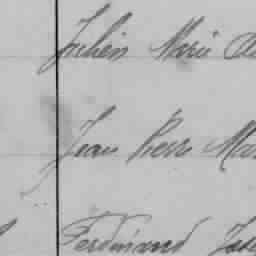 Julien Marie
Jean Pierre Ma
Ferdinand J